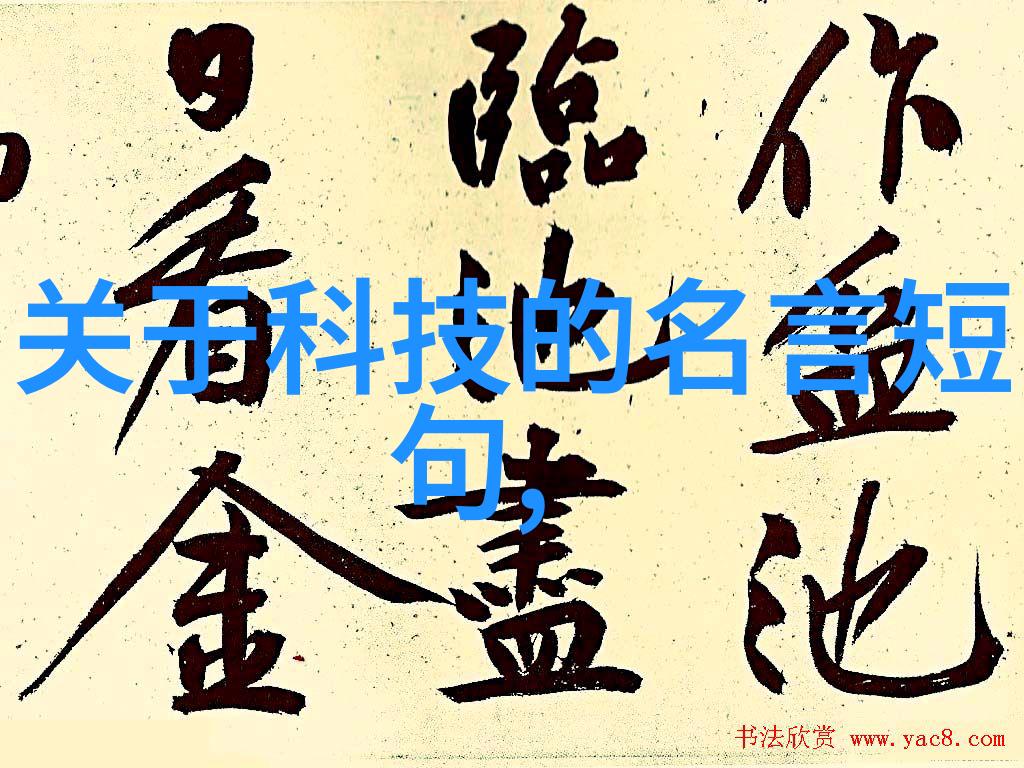 作盆池
臨池盡
日看金
关于科技的名言短
句,
书法欣赏 www.yac8.com